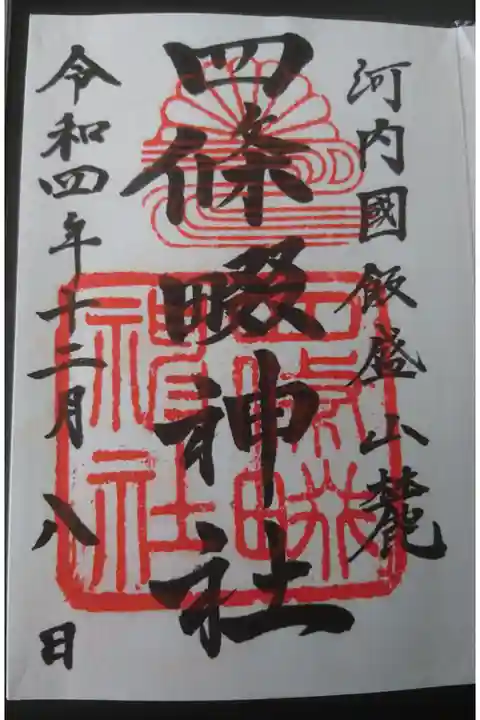 河内國飯盛山麓
四條畷神社
令和四年十二月八日